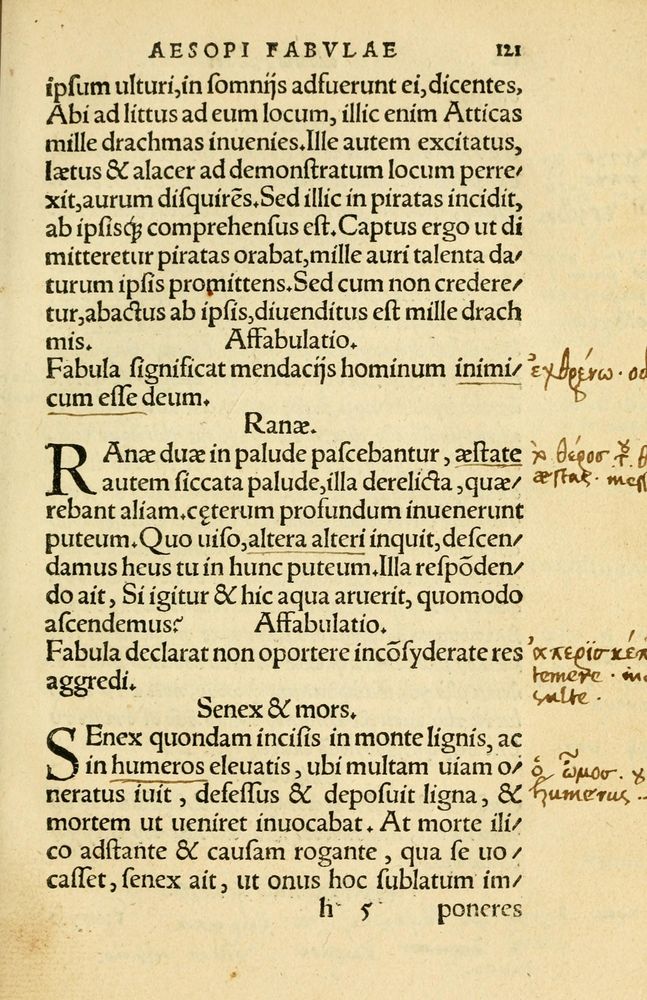 AESOPI FABVLAE 121
ipſum ulturi,in ſomnijs adfuerunt ei,dicentes,
Abi ad littus ad eum locum, illic enim Atticas
mille drachmas inuenies.Ille autem excitatus,
lætus & alacer ad demonſtratum locum perre⸗
xit,aurum diſquirẽs.Sed illic in piratas incidit,
ab ipſisq; comprehenſus eſt.Captus ergo ut di
mitteretur piratas orabat,mille auri talenta da⸗
turum ipſis promittens.Sed cum non credere⸗
tur,abactus ab ipſis,diuenditus eſt mille drach
mis. Affabulatio.
Fabula ſignificat mendacijs hominum inimi⸗ ἐχθραίνω
cum eſſe deum.
Ranæ.
RAnæ duæ in palude paſcebantur, æſtate θέρος
autem ſiccata palude,illa derelicta,quæ⸗ æstas. mess
rebant aliam.cęterum profundum inuenerunt
puteum.Quo uiſo,altera alteri inquit,deſcen⸗
damus heus tu in hunc puteum.Illa reſpõden⸗
do ait, Si igitur & hic aqua aruerit, quomodo
aſcendemus? Affabulatio.
Fabula declarat non oportere incõſyderate res ἀπερισκέπ
aggredi. temere. in
sulte.
Senex & mors.
SEnex quondam inciſis in monte lignis, ac
in humeros eleuatis, ubi multam uiam o⸗ ὁ ὦμος.
neratus iuit, defeſſus & depoſuit ligna, & humerus.
mortem ut ueniret inuocabat. At morte ili⸗
co adſtante & cauſam rogante, qua ſe uo⸗
caſſet, ſenex ait, ut onus hoc ſublatum im⸗
h 5 poneres